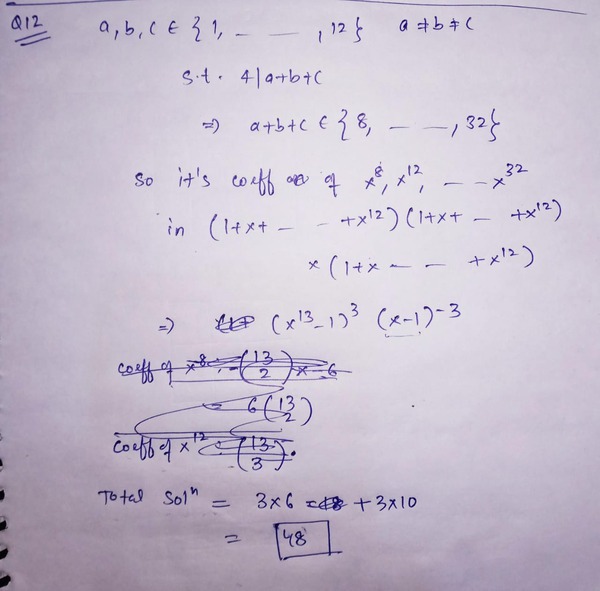 Q12 a, b, c ∈ {1, – – , 12} a ≠ b ≠ c
s.t. 4 | a+b+c
⇒ a+b+c ∈ {8, – – –, 32}
So it's coeff of x^8, x^12, – – x^32
in (1+x+ – – +x^12) (1+x+ – +x^12)
× (1+x – – +x^12)
⇒ (x^13 – 1)^3 (x–1)^–3
coeff of x^8 : – (13 2) × – 6
= 6 (13 2)
coeff of x^12 (13 3).
Total Sol^n = 3×6 = 18 + 3×10
= 48